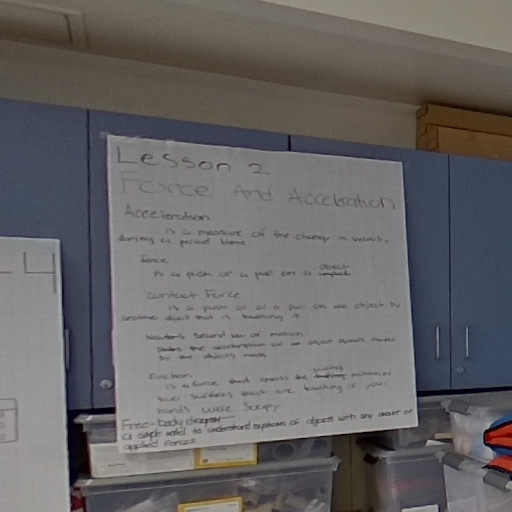 Lesson 2
Force And Acceleration
Acceleration
is a measure of the change in velocity
during a period time
Force
is a push or a pull on a object
contact Force
is a push or or a pull on one object by
another object that is touching it
Newton's second law of motion
the acceleration of an object equals
by the objects mass
Friction
is a force that resists the motion of
two surfaces that are touching if your
hands were
Free-body diagram
a simple to understand of objects with any amount of
applied forces